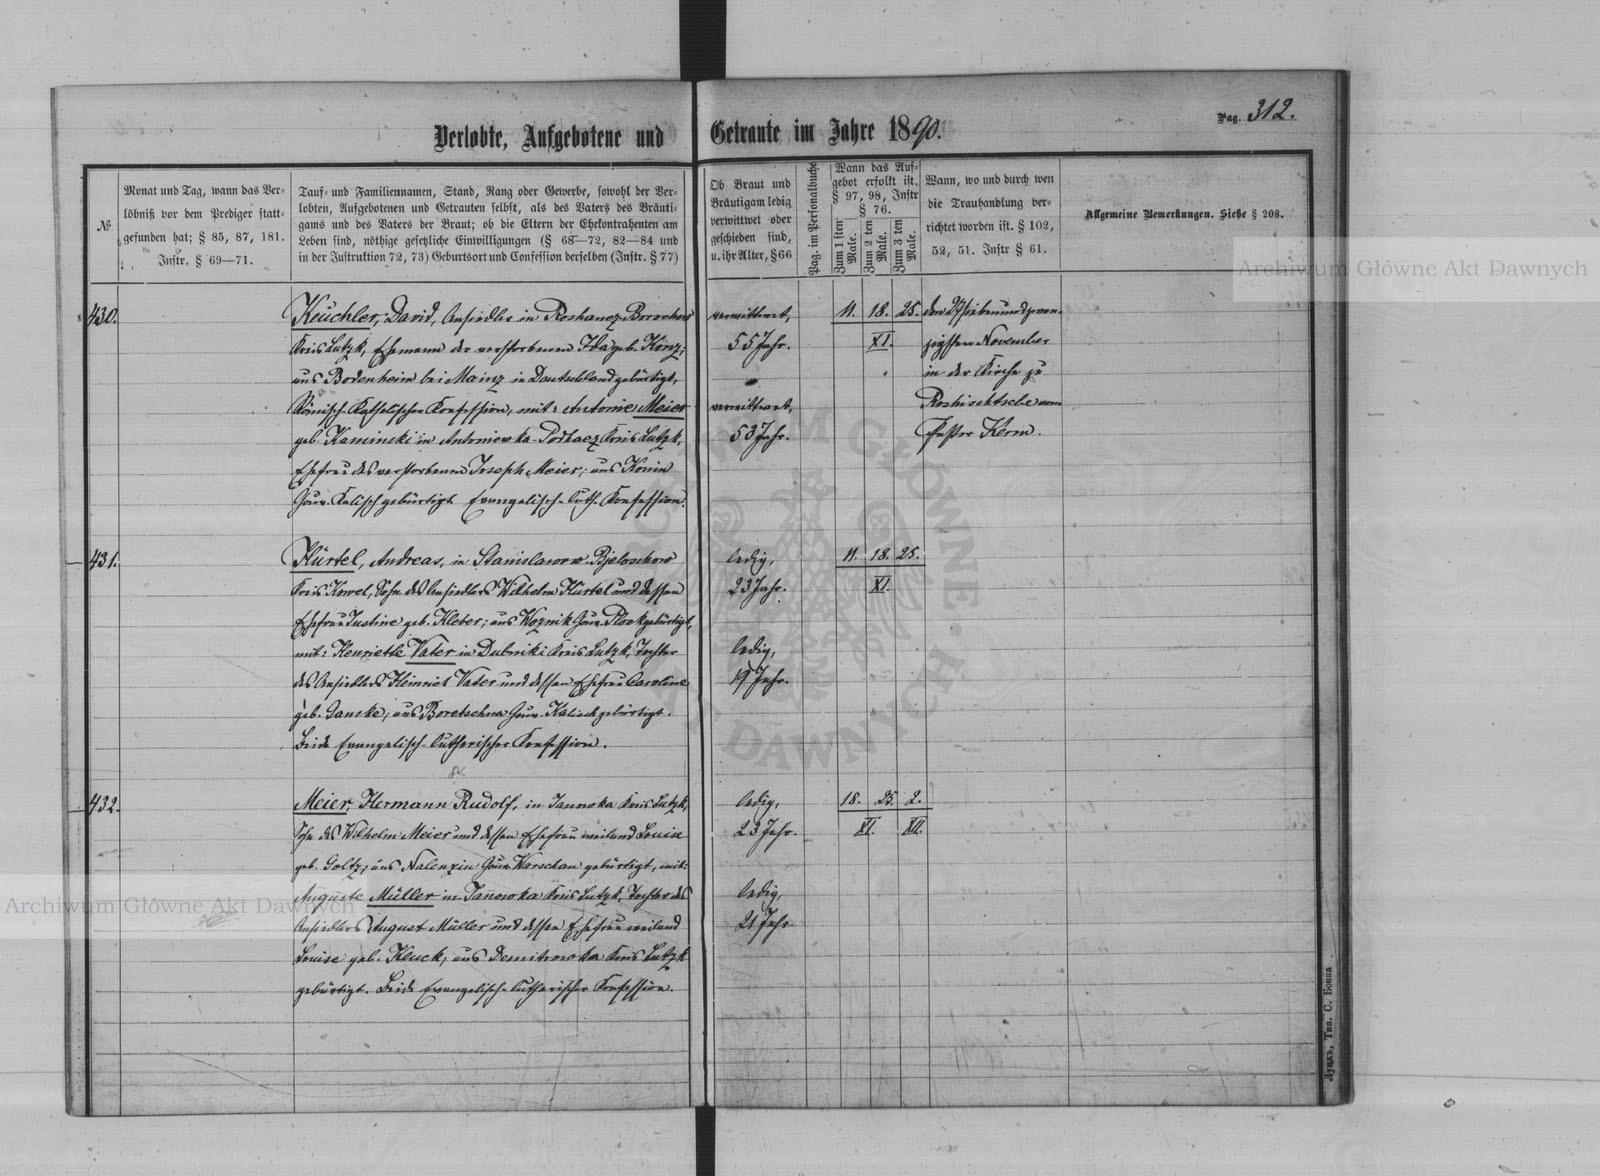 Pag. 312.
Verlobte, Aufgebotene und Getraute im Jahre 1890.
№
Monat und Tag, wann das Ver-
löbniß vor dem Prediger statt-
gefunden hat; § 85, 87, 181.
Instr. § 69—71.
Tauf- und Familiennamen, Stand, Rang oder Gewerbe, sowohl der Ver-
lobten, Aufgebotenen und Getrauten selbst, als des Vaters des Bräuti-
gams und des Vaters der Braut; ob die Eltern der Ehekontrahenten am
Leben sind, nöthige gesetzliche Einwilligungen (§ 68—72, 82—84 und
in der Instruktion 72, 73) Geburtsort und Confession derselben (Instr. § 77)
Ob Braut und
Bräutigam ledig
verwittwet oder
geschieden sind,
u. ihr Alter, § 66
Pag. im Personalbuche
Wann das Auf-
gebot erfolkt ist.
§ 97, 98, Instr
§ 76.
Zum 1 sten
Male.
Zum 2 ten
Male.
Zum 3 ten
Male.
Wann, wo und durch wen
die Trauhandlung ver-
richtet worden ist. § 102,
52, 51. Instr § 61.
Allgemeine Bemerkungen. Siehe § 208.
430.
Keuchler, David, Ansiedler in Roshanez-Borochow
Kreis Lutzk, Ehemann der verstorbenen Ida geb. Kinz;
aus Bodenheim bei Mainz in Deutschland gebürtigt,
Römisch-Katholischer Konfession, mit: Antonie Meier
geb. Kaminski in Antoniewka-Podhaez Kreis Lutzk,
Ehefrau des verstorbenen Joseph Meier; aus Konin
Gouv. Kalisch gebürtigt Evangelisch-luth. Konfession.
verwittwet,
55 Jahr.
verwittwet,
53 Jahr.
11. 18. 25.
XI.
den siebenundzwan-
zigsten November
in der Kirche zu
Roshischtsche vom
Pastor Kerm.
431.
Hürtel, Andreas, in Stanislawow-Bjeloschow
Kreis Kowel, Sohn des Ansiedlers Wilhelm Hürtel und dessen
Ehefrau Justine geb. Kleber; aus Woznik Gouv. Plozk gebürtigt,
mit: Henriette Vater in Dubniki Kreis Lutzk, Tochter
des Ansiedlers Heinrich Vater und dessen Ehefrau Caroline
geb. Janske; aus Boretschna Gouv. Kalisch gebürtigt.
Beide Evangelisch-lutherischer Konfession.
ledig,
23 Jahr.
ledig,
19 Jahr.
11. 18. 25.
XI.
432.
Meier, Hermann Rudolf, in Janowka Kreis Lutzk,
Sohn des Wilhelm Meier und dessen Ehefrau weiland Louise
geb. Goltz; aus Nalenzin Gouv. Warschau gebürtigt, mit:
Auguste Müller in Janowka Kreis Lutzk, Tochter des
Ansiedlers August Müller und dessen Ehefrau weiland
Louise geb. Kluck; aus Demitrowka Kreis Lutzk
gebürtigt. Beide Evangelisch-lutherischer Konfession.
ledig,
23 Jahr.
ledig,
21 Jahr.
18. 25. 2.
XI. XII.
Луцкъ, Тип. С. Бонка
Archiwum Główne Akt Dawnych
Archiwum Główne Akt Dawnych